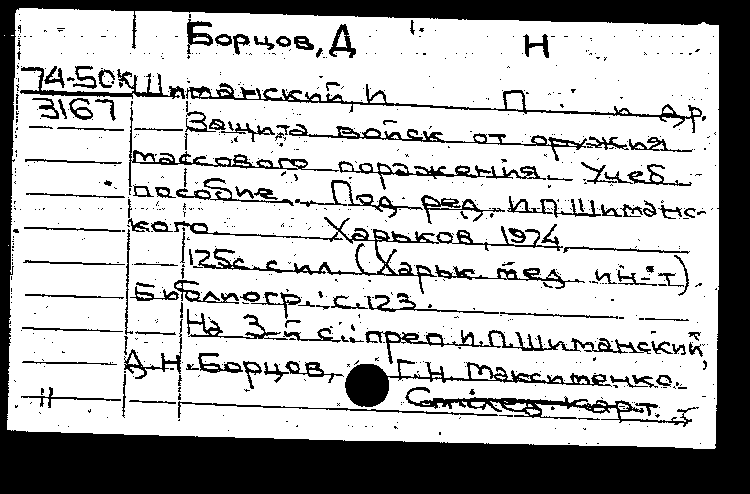 Борцов, Д Н
74-50К Шиманский, И П и др.
3167
Защита войск от оружия
массового поражения. Учеб.
пособие... Под ред. И.П.Шиманс-
кого. Харьков, 1974.
125с. с ил. (Харьк. мед. ин-т).
Библиогр.: с.123.
На 3-й с.: преп. И.П.Шиманский,
Д.Н.Борцов, Г.Н. Максименко.
11 См.след. карт.